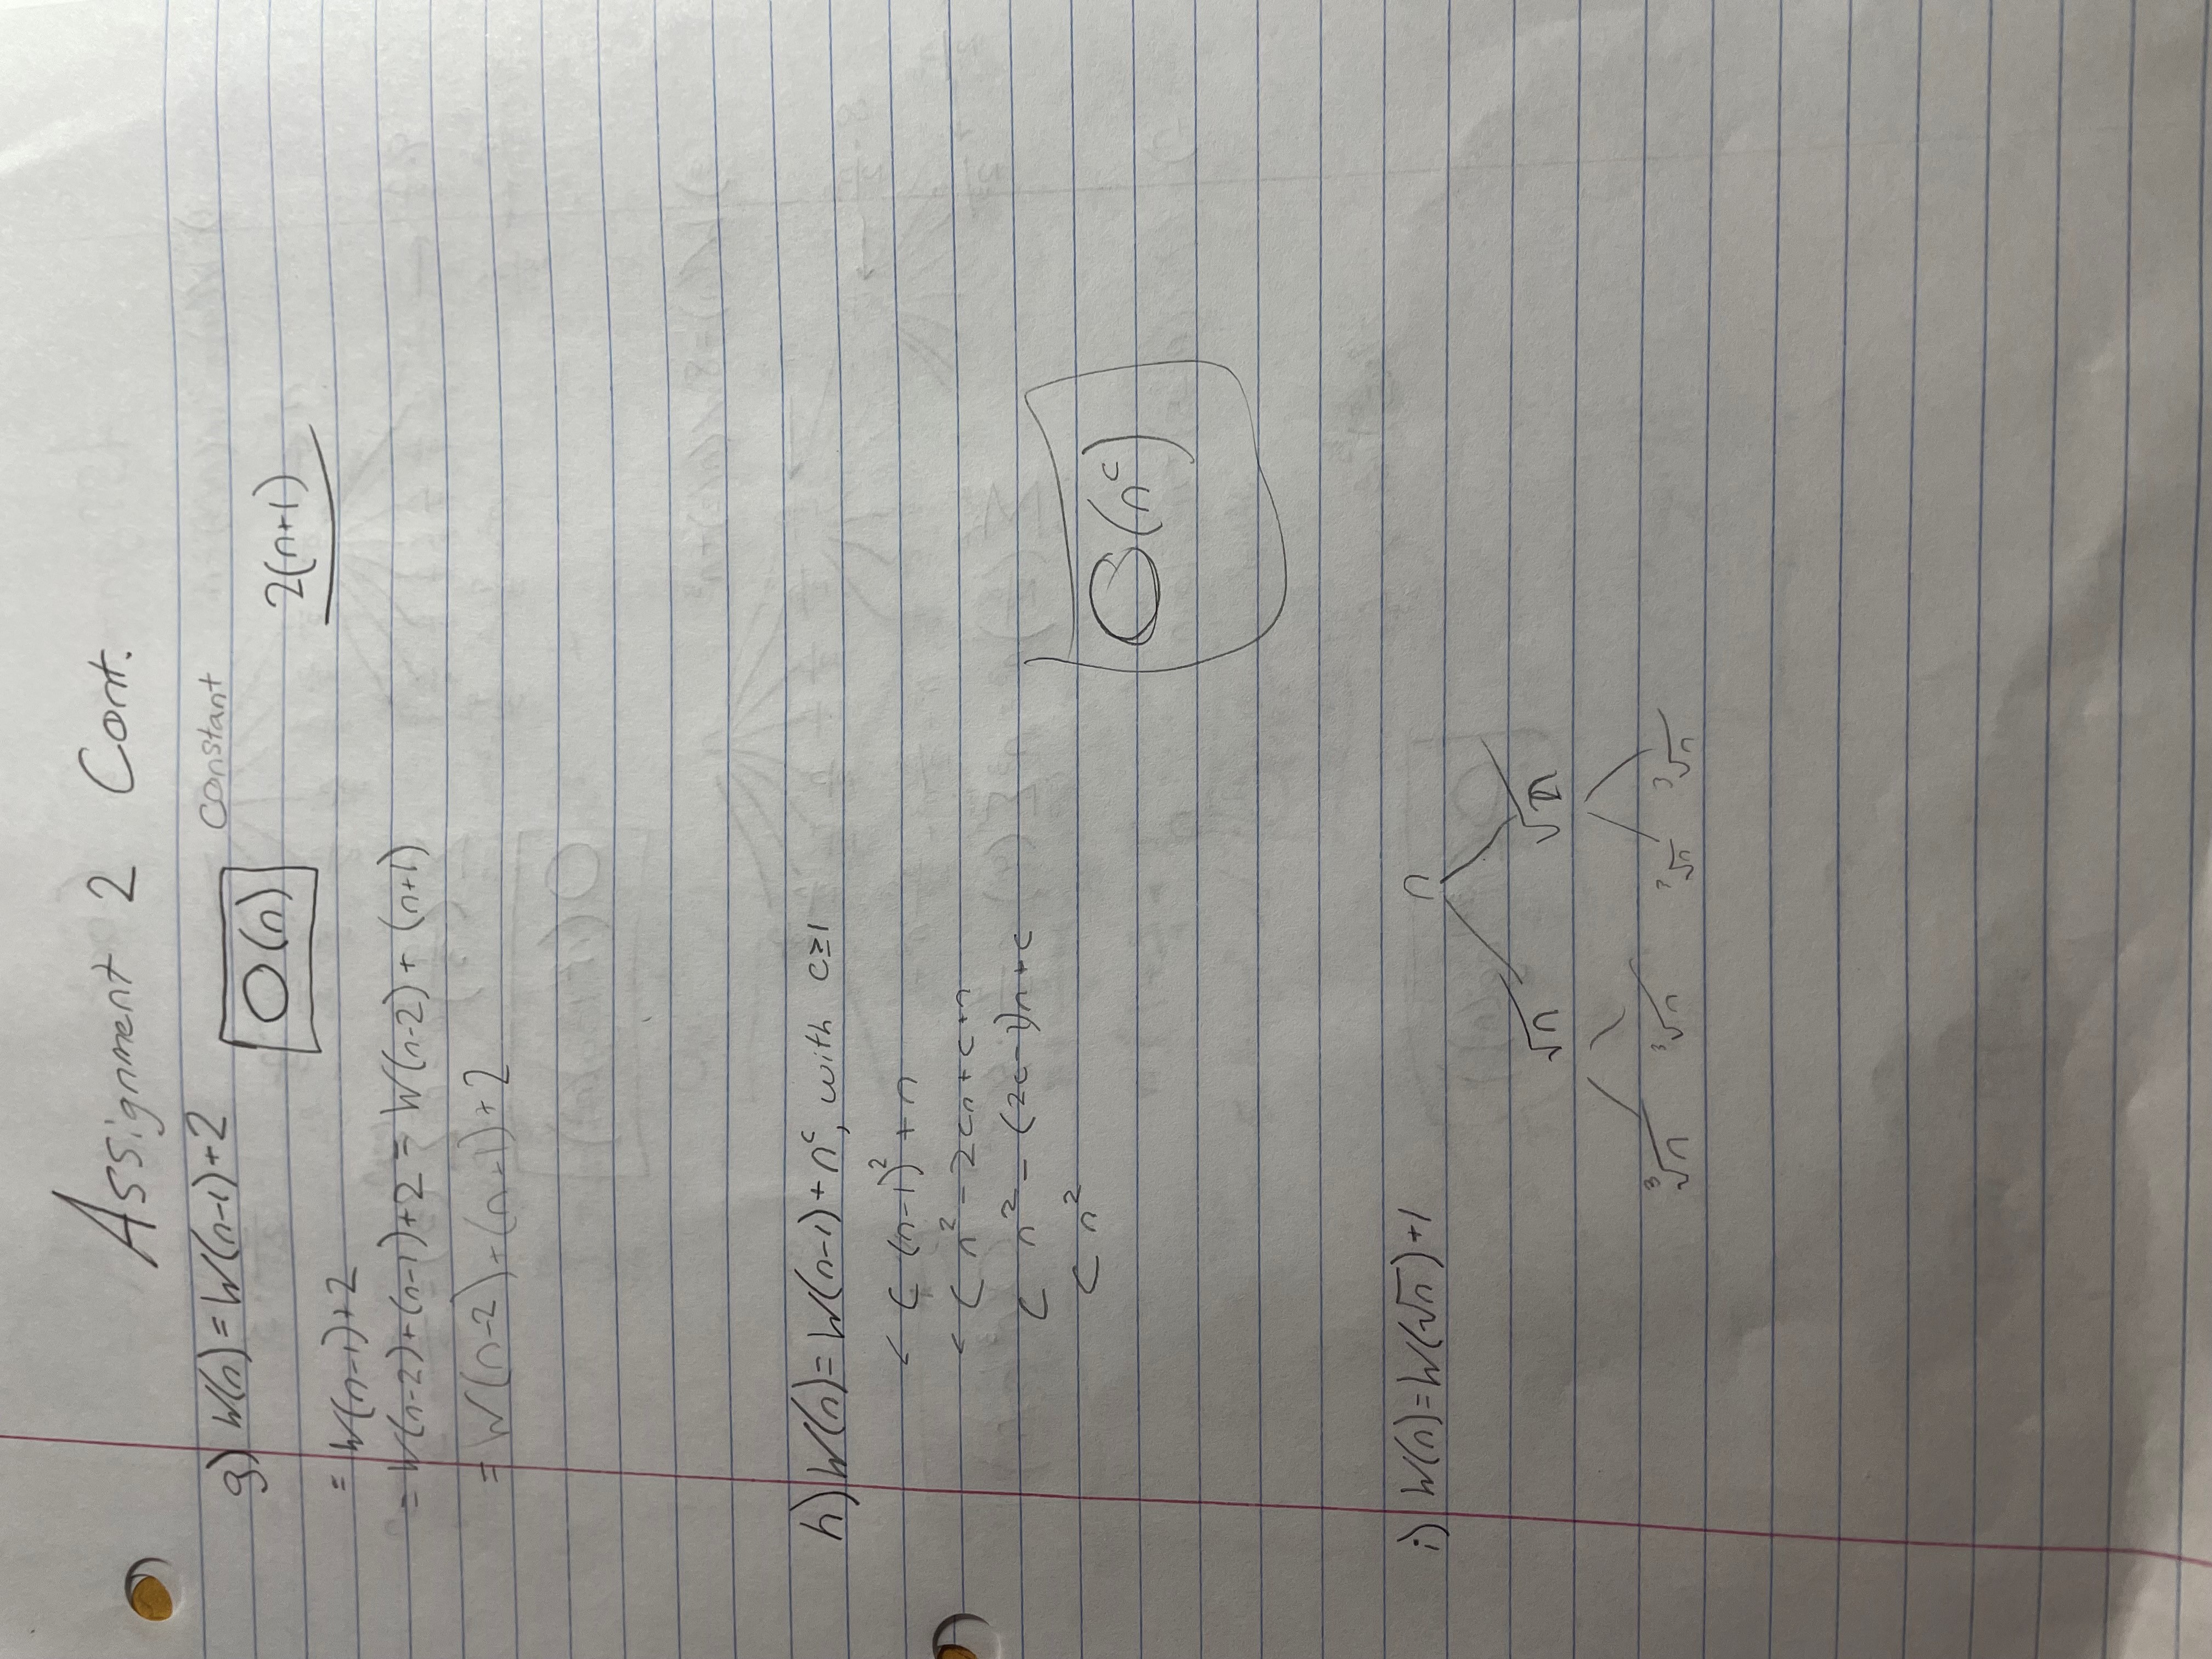 Assignment 2 Cont.
g) W(n) = W(n-1)+2 O(n) Constant
2(n+1)
= W(n-1)+2
= W(n-2)+(n-1)+2 = W(n-2)+(n+1)
= W(n-2)+(n+1)+2
h) W(n) = W(n-1)+n^c, with c≥1
< C (n-1)²+n
< C n²-2cn+c+n
C n²-(2c-1)n+c
C n²
O(n^c)
i) W(n) = W(√n)+1
n
√n √n
³√n ³√n ³√n ³√n